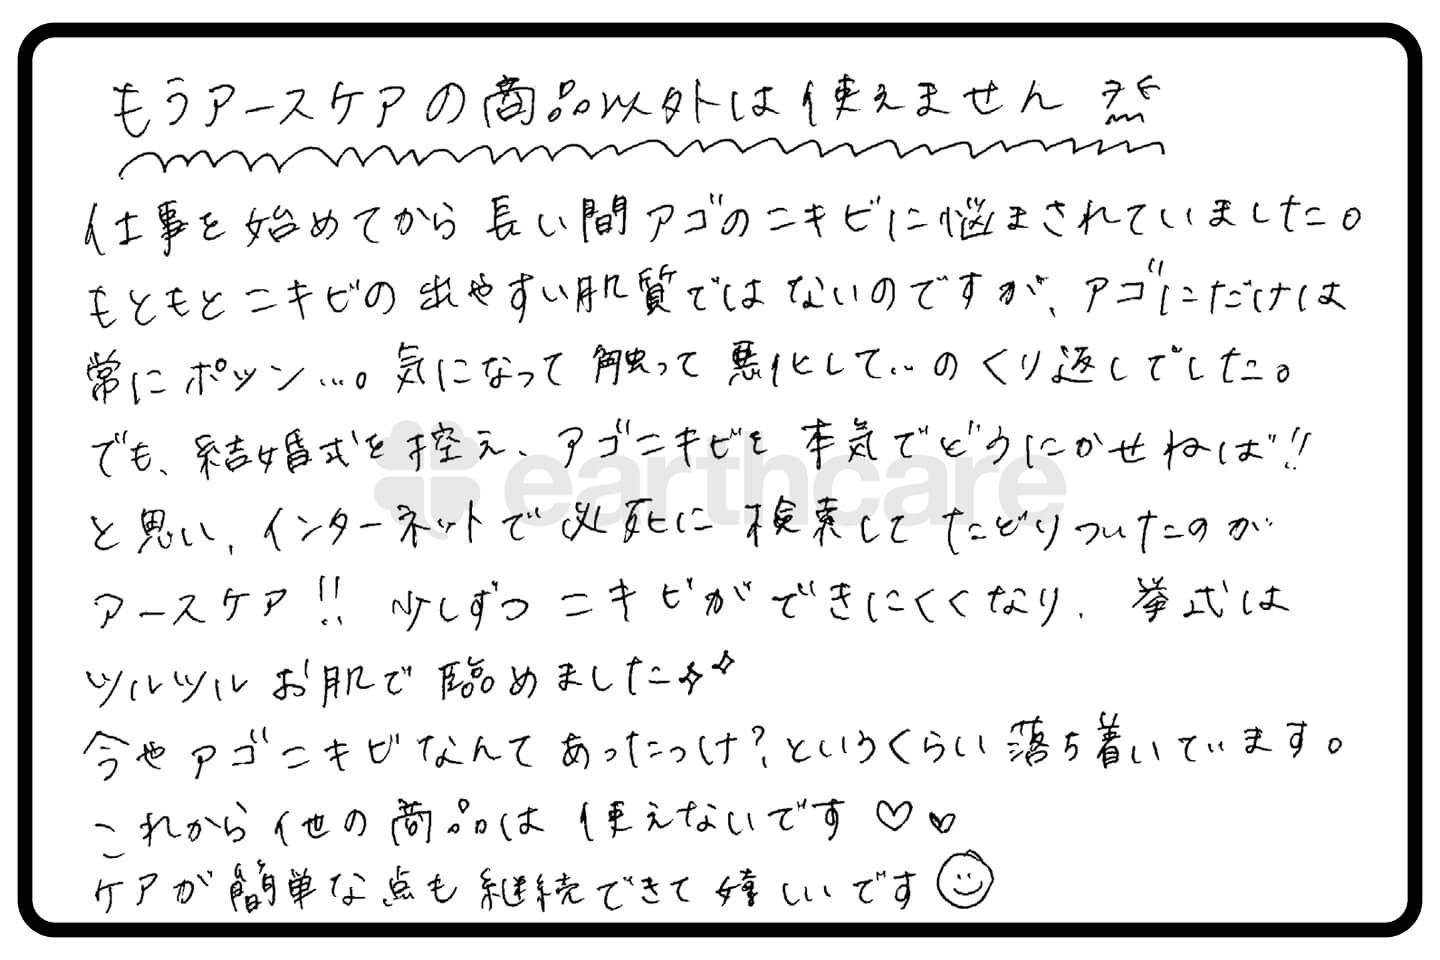 もうアースケアの商品以外は使えません
仕事を始めてから長い間アゴのニキビに悩まされていました。
もともとニキビの出やすい肌質ではないのですが、アゴにだけは
常にポツン…。気になって触って悪化して‥のくり返しでした。
でも、結婚式を控え、アゴニキビを本気でどうにかせねば!!
と思い、インターネットで必死に検索してたどりついたのが
アースケア!! 少しずつニキビができにくくなり、挙式は
ツルツルお肌で臨めました
今やアゴニキビなんてあったっけ?というくらい落ち着いています。
これから他の商品は使えないです♡♡
ケアが簡単な点も継続できて嬉しいです
earthcare